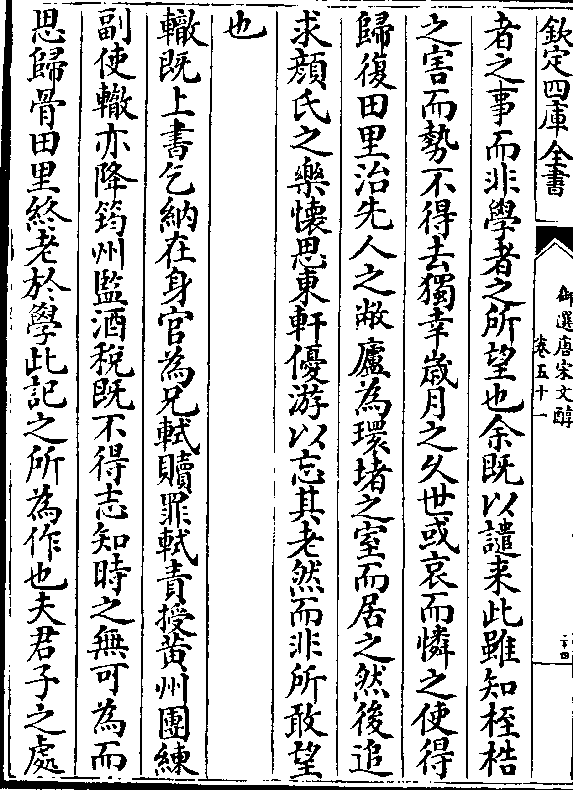 欽定四庫全書
御選唐宋文醇
卷五十一
者之事而非學者之所望也余既以譴来此雖知桎梏
之害而勢不得去獨幸歳月之久世或哀而憐之使得
歸復田里治先人之敝廬為環堵之室而居之然後追
求顔氏之樂懐思東軒優游以忘其老然而非所敢望
也
轍既上書乞納在身官為兄軾贖罪軾責授黄州團練
副使轍亦降筠州監酒税既不得志知時之無可為而
思歸骨田里終老於學此記之所為作也夫君子之處